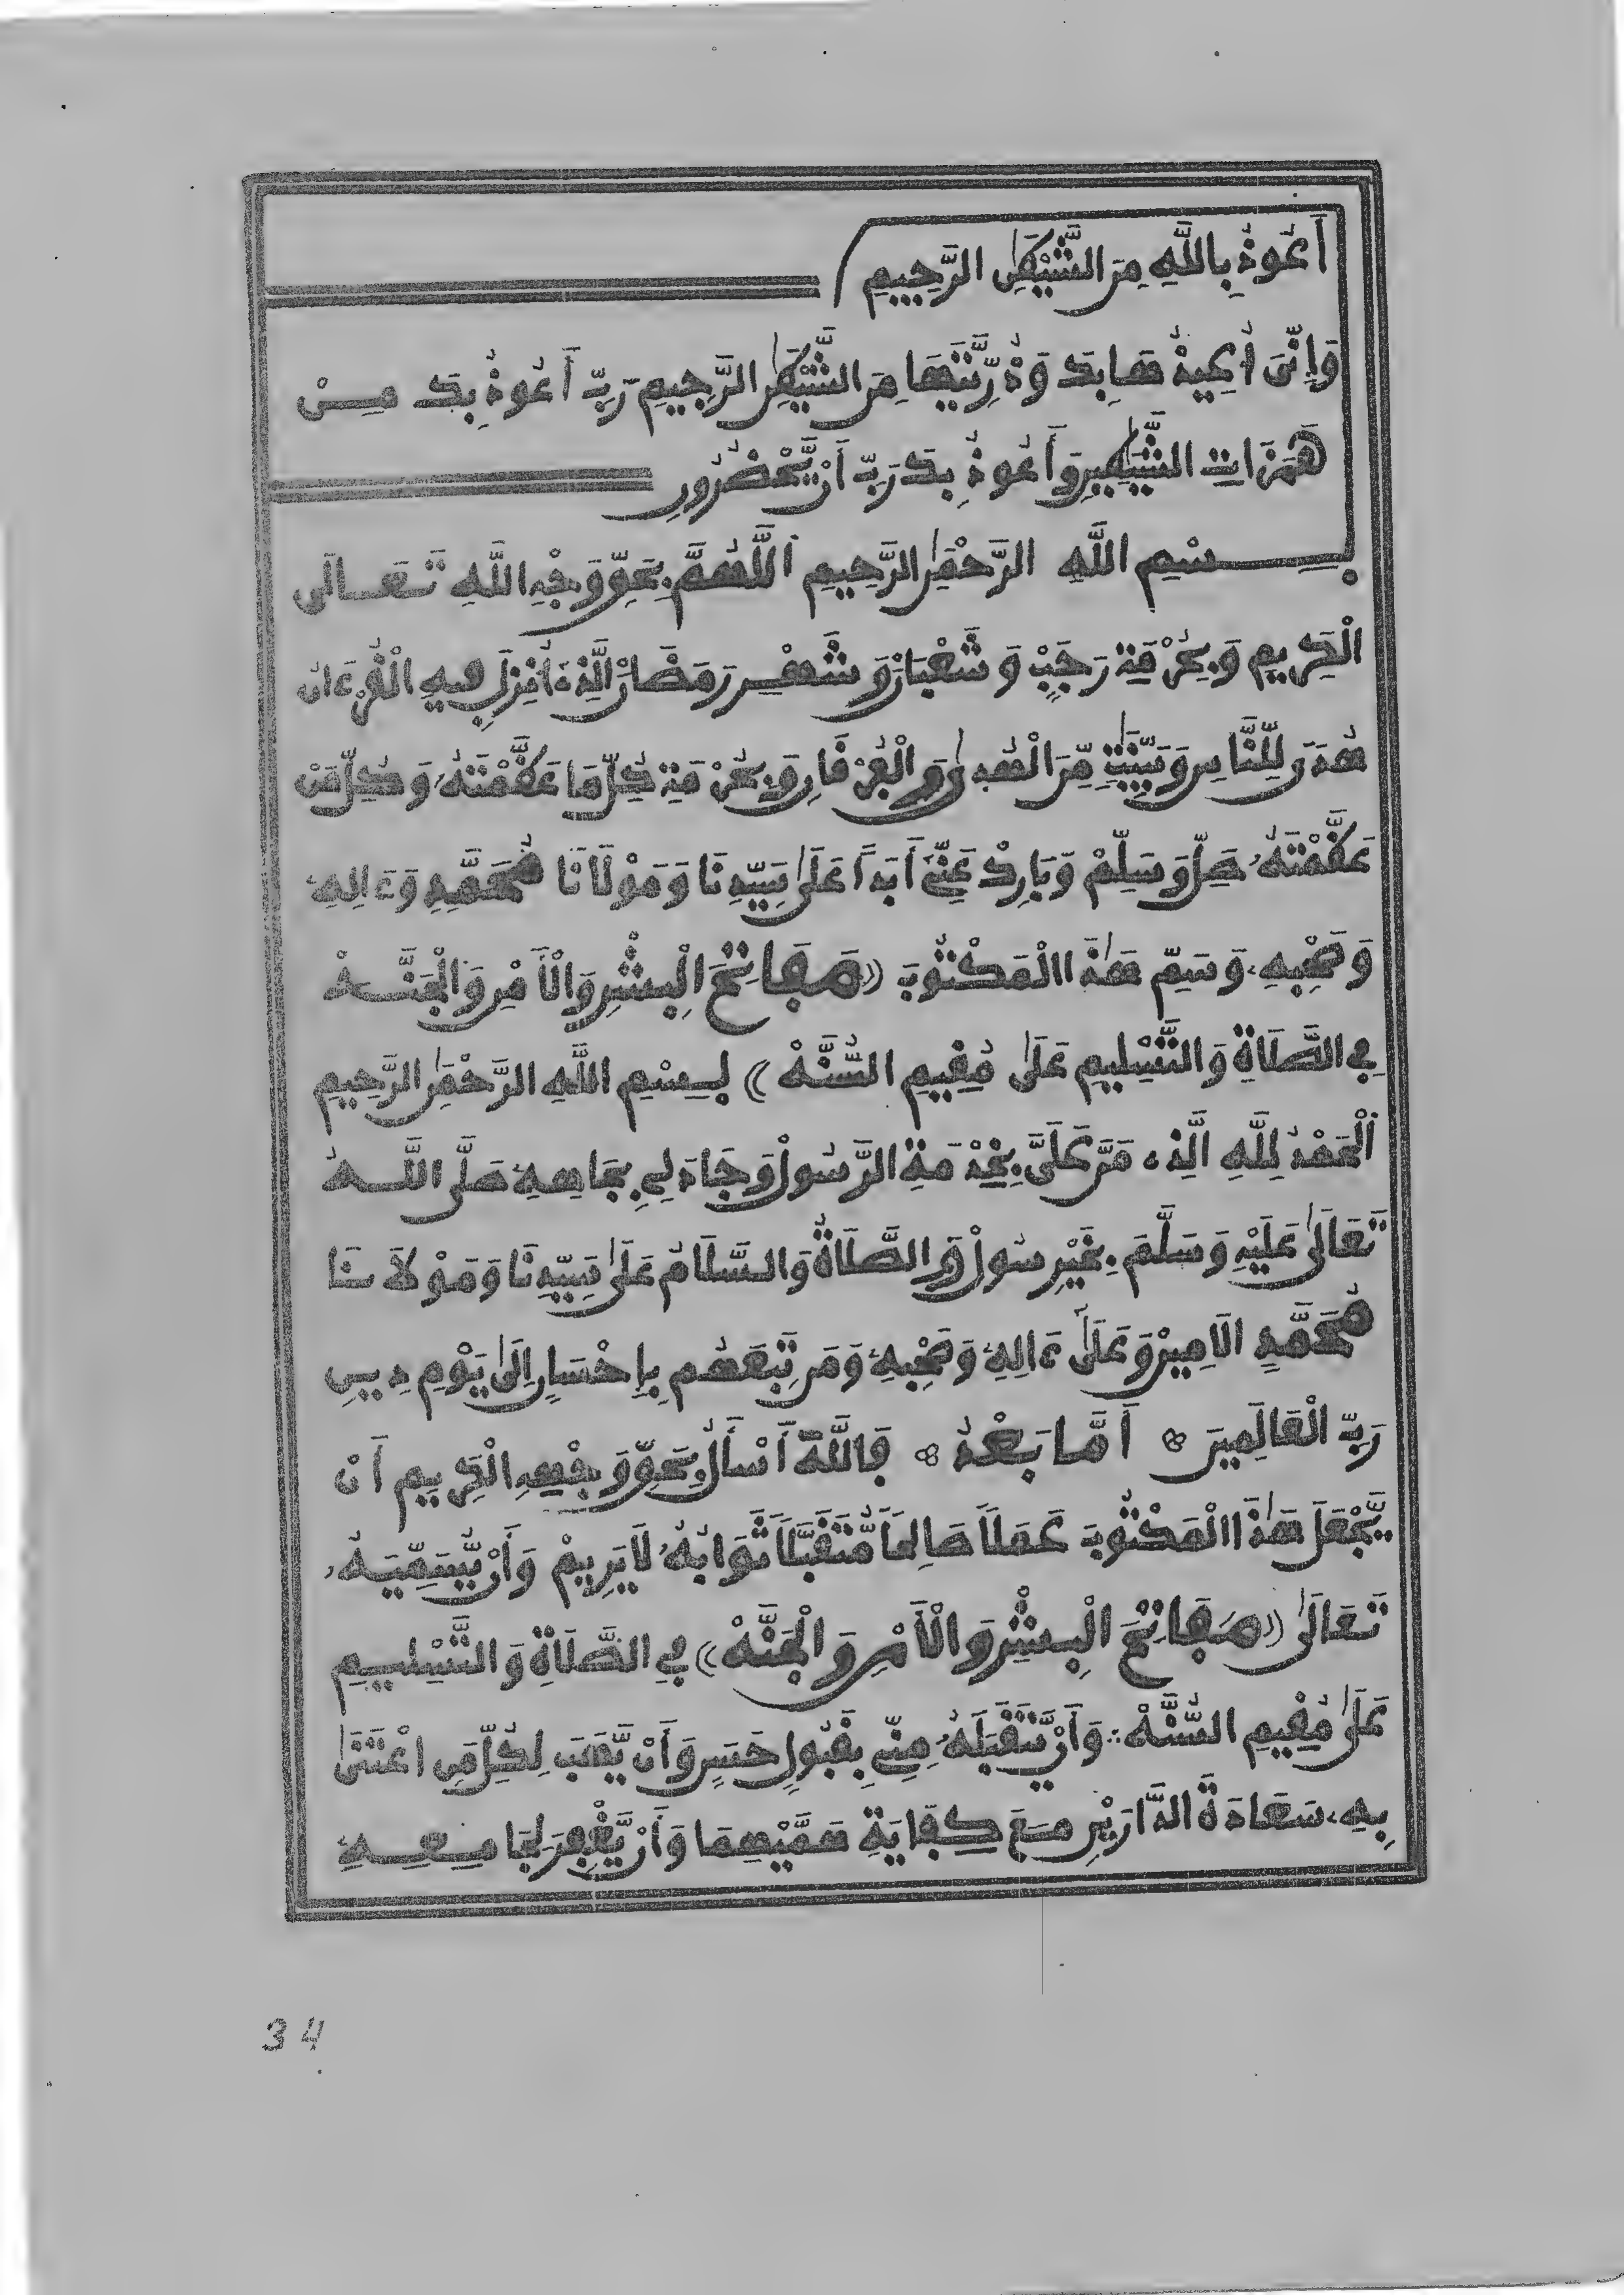 أَعُوذُ بِاللَّهِ مِنَ الشَّيْطَٰنِ الرَّجِيمِ
وَإِنِّيَ أُعِيذُهَا بِكَ وَذُرِّيَّتَهَا مِنَ الشَّيْطَٰنِ الرَّجِيمِ رَبِّ أَعُوذُ بِكَ مِنْ
هَمَزَاتِ الشَّيَٰطِينِ وَأَعُوذُ بِكَ رَبِّ أَنْ يَّحْضُرُونِ
بِسْمِ اللَّهِ الرَّحْمَٰنِ الرَّحِيمِ اَللَّهُمَّ بِحَقِّ وَجْهِ اللَّهِ تَعَالَى
الْكَرِيمِ وَبِحُرْمَةِ رَجَبْ وَشَعْبَانْ وَشَهْرِ رَمَضَانْ اَلَّذِي أُنْزِلَ فِيهِ الْقُرْءَانُ
هُدًى لِلنَّاسِ وَبَيِّنَٰتٍ مِّنَ الْهُدَىٰ وَالْفُرْقَانِ وَبِحُرْمَةِ كُلِّ مَا عَظَّمْتَهُ وَكُلِّ مَنْ
عَظَّمْتَهُ صَلِّ وَسَلِّمْ وَبَارِكْ عَنِّي أَبَدًا عَلَىٰ سَيِّدِنَا وَمَوْلَانَا مُحَمَّدٍ وَءَالِهِ
وَصَحْبِهِ وَسَمِّ هَٰذَا الْمَكْتُوبَ ((مَفَاتِحَ الْبِشْرِ وَالْأَمْنِ وَالْجَنَّهْ
فِي الصَّلَاةِ وَالتَّسْلِيمِ عَلَىٰ مُقِيمِ السُّنَّهْ)) بِسْمِ اللَّهِ الرَّحْمَٰنِ الرَّحِيمِ
اَلْحَمْدُ لِلَّهِ الَّذِي مَنَّ عَلَيَّ بِخِدْمَةِ الرَّسُولْ وَجَادَ لِي بِجَاهِهِ صَلَّى اللَّهُ
تَعَالَىٰ عَلَيْهِ وَسَلَّمَ بِخَيْرِ سُولْ وَالصَّلَاةُ وَالسَّلَامُ عَلَىٰ سَيِّدِنَا وَمَوْلَانَا
مُحَمَّدٍ الَامِينْ وَعَلَىٰ ءَالِهِ وَصَحْبِهِ وَمَن تَبِعَهُم بِإِحْسَانٍ إِلَىٰ يَوْمِ دِينِ
رَبِّ الْعَالَمِينَ أَمَّا بَعْدُ فَاللَّهَ أَسْأَلُ بِحَقِّ وَجْهِهِ الْكَرِيمِ أَنْ
يَّجْعَلَ هَٰذَا الْمَكْتُوبَ عَمَلًا صَالِحًا مُّتَقَبَّلًا ثَوَابُهُ لَا يَرِيمْ وَأَنْ يُّسَمِّيَهُ
تَعَالَىٰ ((مَفَاتِحَ الْبِشْرِ وَالْأَمْنِ وَالْجَنَّهْ)) فِي الصَّلَاةِ وَالتَّسْلِيمِ
عَلَىٰ مُقِيمِ السُّنَّهْ وَأَنْ يَّتَقَبَّلَهُ مِنِّي بِقَبُولٍ حَسَنٍ وَأَنْ يَّهَبَ لِكُلِّ مَنِ اعْتَنَىٰ
بِهِ سَعَادَةَ الدَّارَيْنِ مَعَ كِفَايَةِ هَمَّيْهِمَا وَأَنْ يَّغْفِرَ لِجَامِعِهِ
34